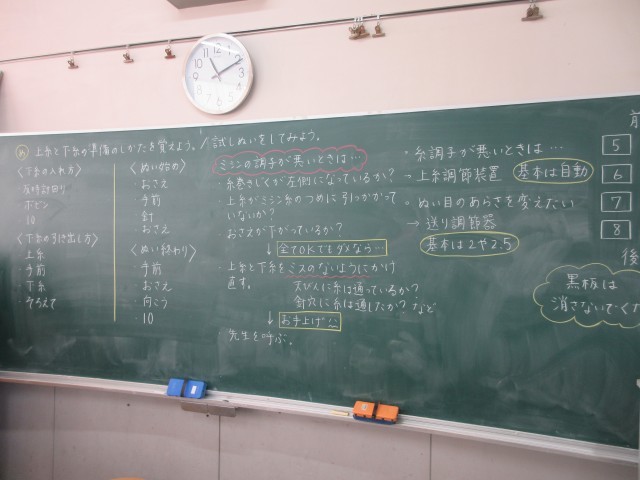 め 上糸と下糸の準備のしかたを覚えよう。/試しぬいをしてみよう。
〈下糸の入れ方〉
反時計回り
ボビン
10
〈下糸の引き出し方〉
上糸
手前
下糸
そろえて
〈ぬい始め〉
・おさえ
・手前
・針
・おさえ
〈ぬい終わり〉
・手前
・おさえ
・向こう
・10
ミシンの調子が悪いときは…
・糸巻きじくが左側になっているか?
・上糸がミシン糸のつめに引っかかって
いないか?
・おさえが下がっているか?
↓ 全てOKでもダメなら…
・上糸と下糸をミスのないようにかけ
直す。
天びんに糸は通っているか?
針穴に糸は通したか? など
↓ お手上げ…
先生を呼ぶ。
・糸調子が悪いときは…
→ 上糸調節装置 基本は自動
・ぬい目のあらさを変えたい
→ 送り調節器
基本は2や2.5
前
5
6
7
8
後
黒板は
消さないでくだ